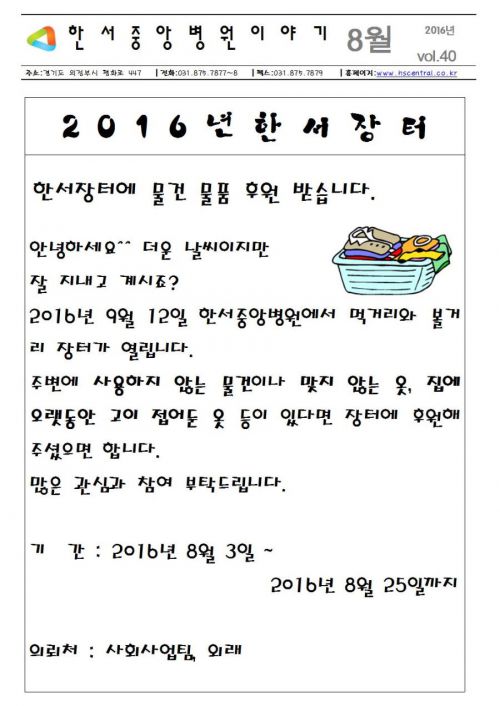 한서중앙병원이야기 8월 2016년
vol.40
주소:경기도 의정부시 평화로 447 |전화:031.875.7877~8 |팩스:031.875.7879 |홈페이지:www.hscentral.co.kr
2016년한서장터
한서장터에 물건 물품 후원 받습니다.
안녕하세요^^ 더운 날씨이지만
잘 지내고 계시죠?
2016년 9월 12일 한서중앙병원에서 먹거리와 볼거
리 장터가 열립니다.
주변에 사용하지 않는 물건이나 맞지 않는 옷, 집에
오랫동안 고이 접어둔 옷 등이 있다면 장터에 후원해
주셨으면 합니다.
많은 관심과 참여 부탁드립니다.
기 간 : 2016년 8월 3일 ~
2016년 8월 25일까지
의뢰처 : 사회사업팀, 외래